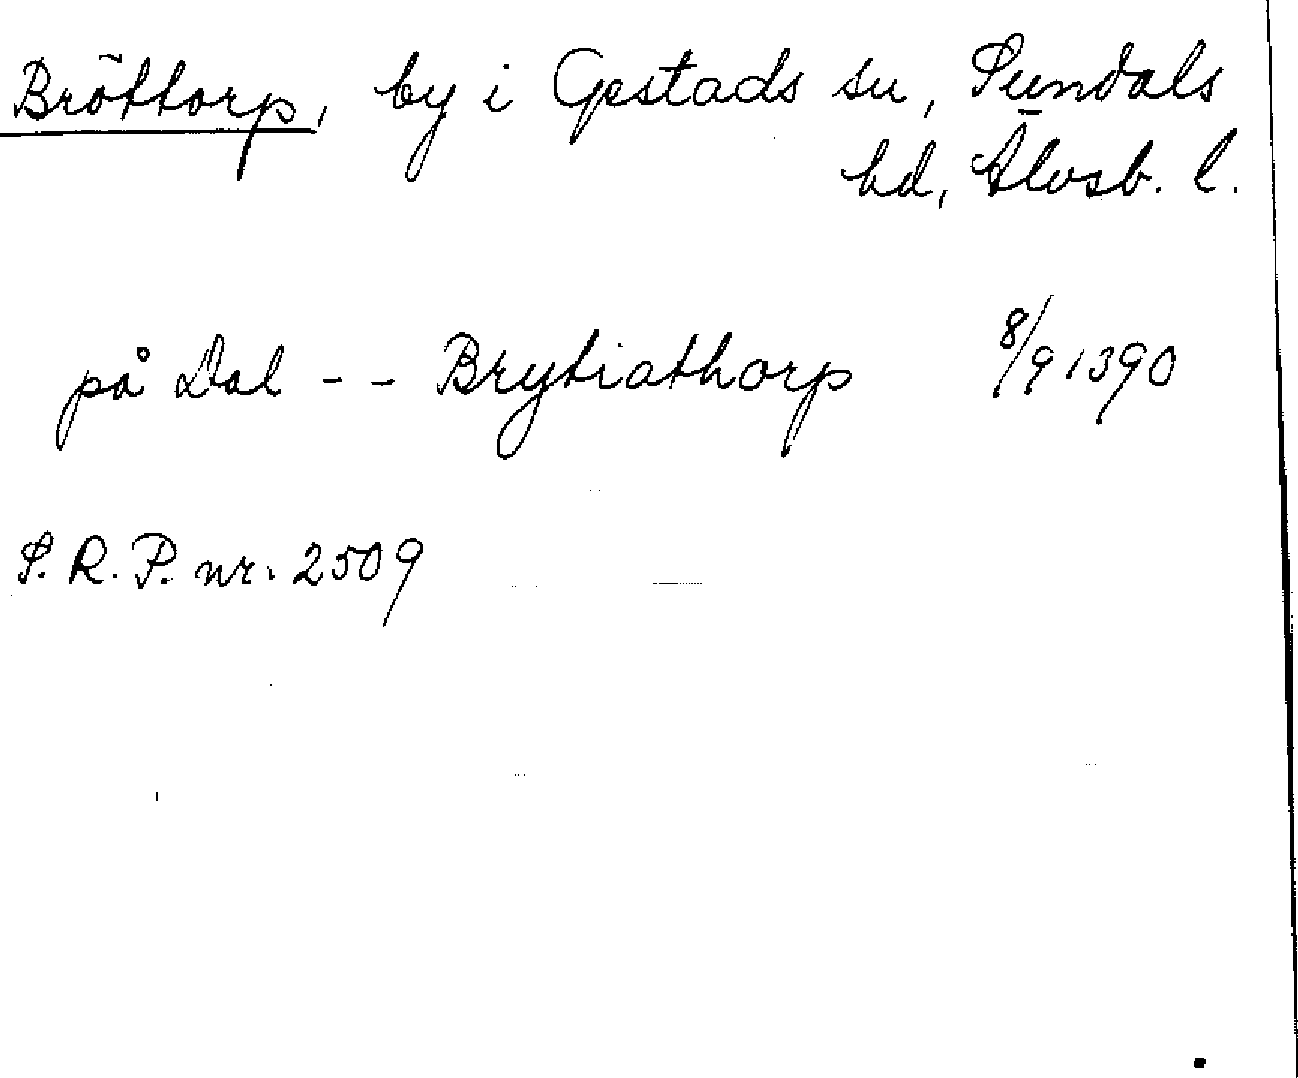 Bröttorp, by i Gestads sn, Sundals
hd, Älvsb. l.
på Dal - - Brytiathorp 8/9 1390
S. R. P. nr. 2509